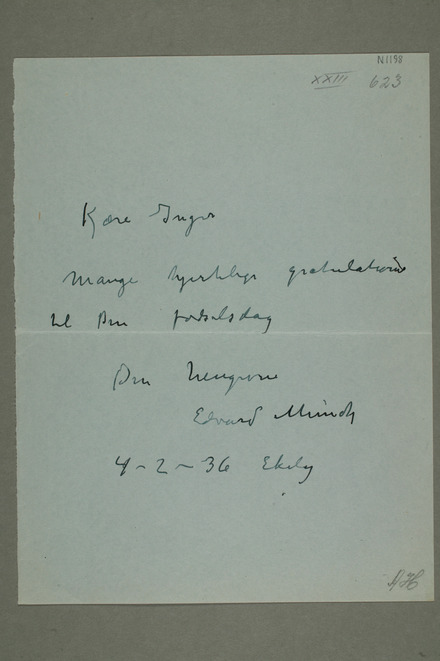 N 1198
XXIII 623
Kjære Inger
Mange hjerteligs gratulationer
til Din fødselsdag
Din hengivne
Edvard Munch
4-2-36 Ekely